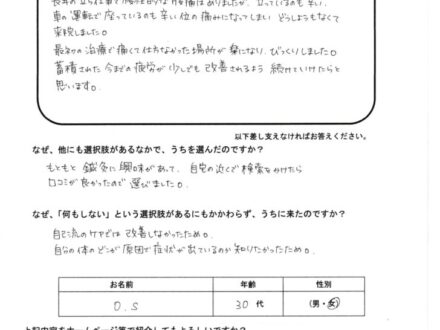 長年の立ち仕事で慢性的な腰痛はありましたが、立っているのも辛い、
車の運転で座っているのも辛い位の痛みになってしまい どうしようもなくて
来院しました。
最初の治療で痛くて仕方なかった場所が楽になり、びっくりしました。
蓄積された今までの疲労が少しでも改善されるよう 続けていけたらと
思います。
以下差し支えなければお答えください。
なぜ、他にも選択肢があるなかで、うちを選んだのですか？
もともと 鍼灸に興味があって、自宅の近くで検索をかけたら
口コミが良かったので 選びました。
なぜ、「何もしない」という選択肢があるにもかかわらず、うちに来たのですか？
自己流のケアでは 改善しなかったため。
自分の体のどこが原因で症状が出ているのか知りたかったため。
お名前 年齢 性別
O.S 30 代 (男・女)
上記内容をホームページ等で紹介してもよろしいですか？